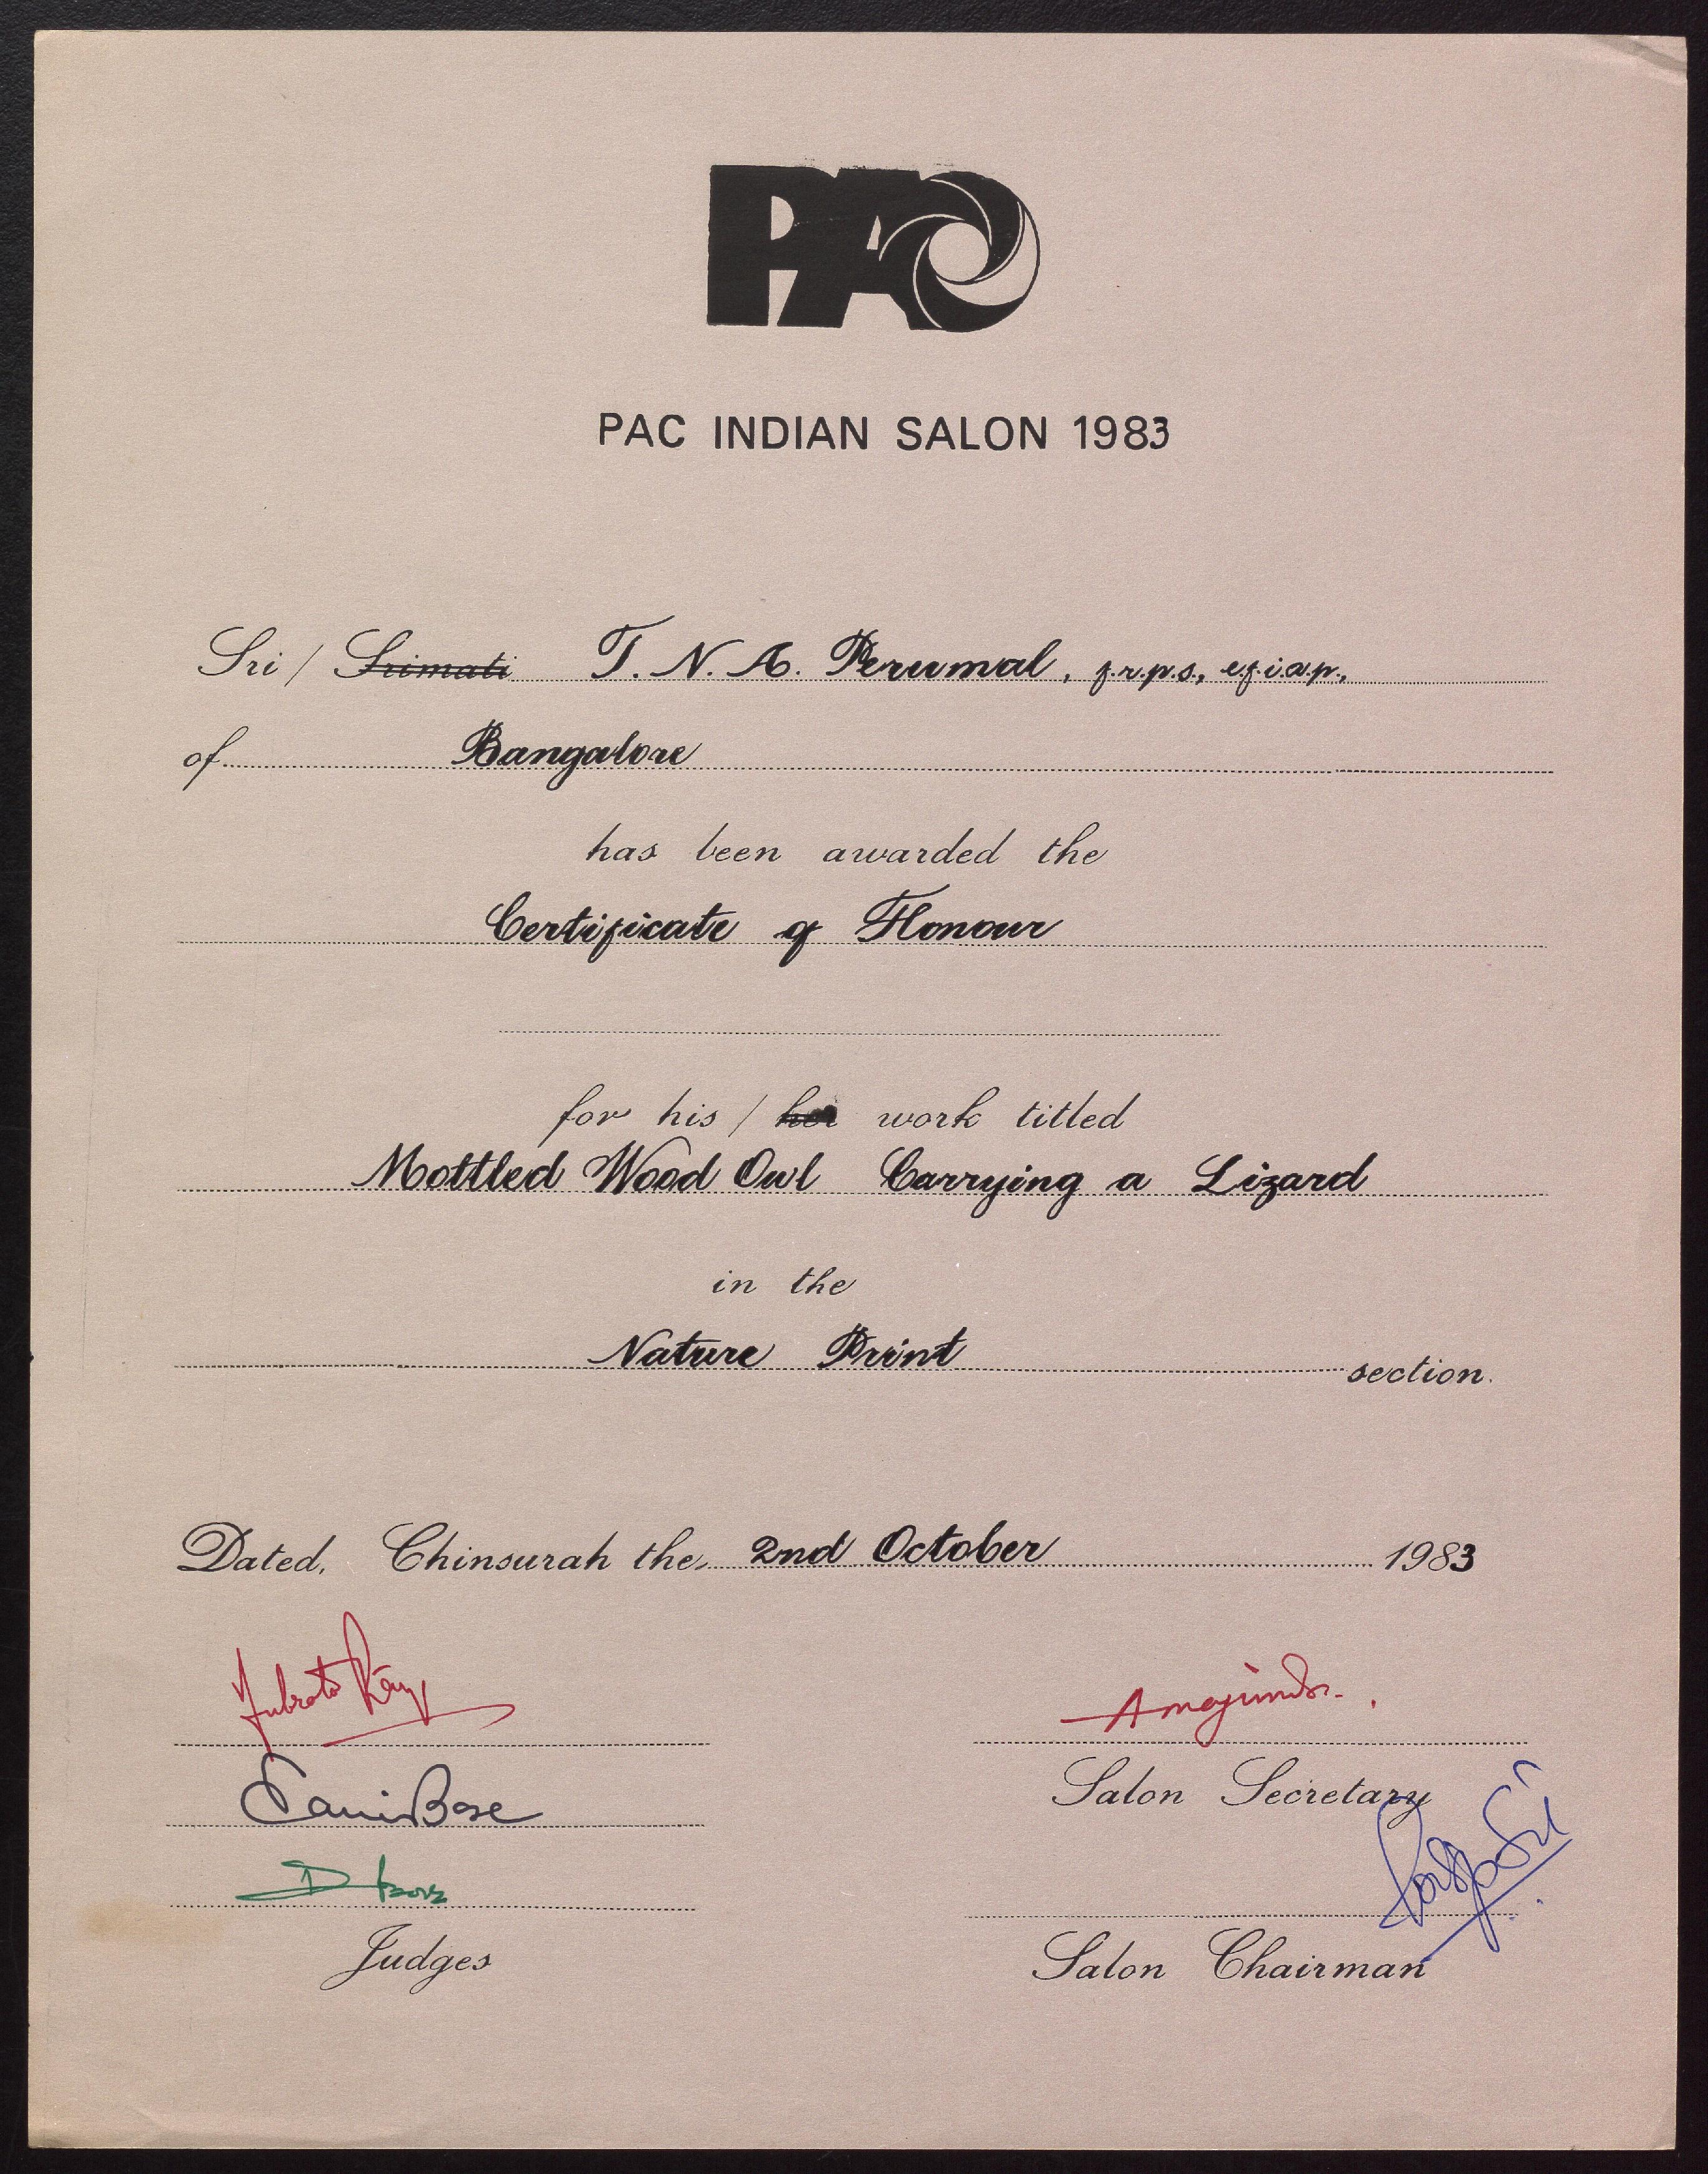 PAC
PAC INDIAN SALON 1983
Sri / Srimati T. N. A. Perumal, f.r.p.s., e.f.i.a.p.,
of Bangalore
has been awarded the
Certificate of Honour
for his / her work titled
Mottled Wood Owl Carrying a Lizard
in the
Nature Print section.
Dated, Chinsurah the 2nd October 1983
Salon Secretary
Bose
Judges
Salon Chairman